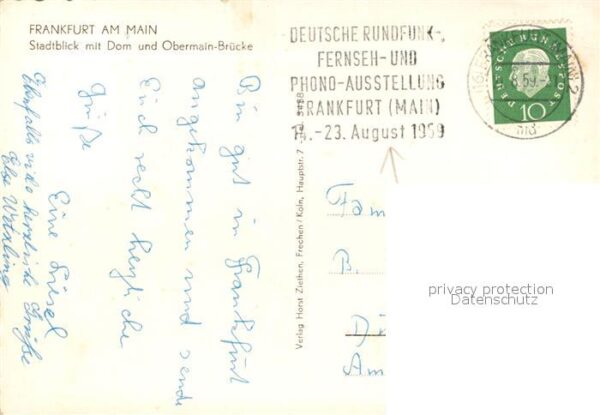 FRANKFURT AM MAIN
Stadtblick mit Dom und Obermain-Brücke
DEUTSCHE RUNDFUNK-,
FERNSEH-UND
PHONO-AUSSTELLUNG
FRANKFURT (MAIN)
14.-23. August 1959
DEUTSCHE BUNDESPOST
10
59
Bin gut in Frankfurt
angekommen und sende
Euch recht herzliche
Grüße
Eure Liesel
Ebenfalls viele herzliche Grüße
Else
Verlag Horst Ziethen, Frechen/Köln, Hauptstr. 7
Fam
privacy protection
Datenschutz